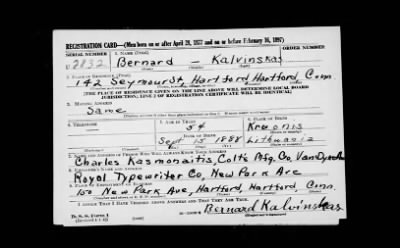 REGISTRATION CARD—(Men born on or after April 28, 1877 and on or before February 16, 1897)
SERIAL NUMBER 1. NAME (Print)
U 2832 Bernard - Kalvinskas
2. PLACE OF RESIDENCE (Print)
142 Seymour St, Hartford, Hartford, Conn
[THE PLACE OF RESIDENCE GIVEN ON THE LINE ABOVE WILL DETERMINE LOCAL BOARD
JURISDICTION; LINE 2 OF REGISTRATION CERTIFICATE WILL BE IDENTICAL]
3. MAILING ADDRESS
Same
4. TELEPHONE 5. AGE IN YEARS 6. PLACE OF BIRTH
54 Kruonis
Sept 15 1888 Lithuania
7. NAME AND ADDRESS OF PERSON WHO WILL ALWAYS KNOW YOUR ADDRESS
Charles Kasmonaitis, Colt's Mfg. Co, Van Dyke
8. EMPLOYER'S NAME AND ADDRESS
Royal Typewriter Co, New Park Ave
9. PLACE OF EMPLOYMENT OR BUSINESS
150 New Park Ave, Hartford, Hartford Conn.
I AFFIRM THAT I HAVE VERIFIED ABOVE ANSWERS AND THAT THEY ARE TRUE.
D. S. S. Form 1 Bernard Kalvinskas